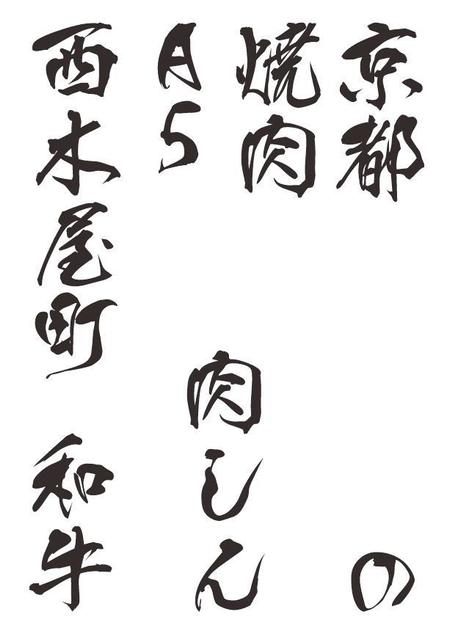 京都
の
焼肉
A5
肉しん
西木屋町
和牛